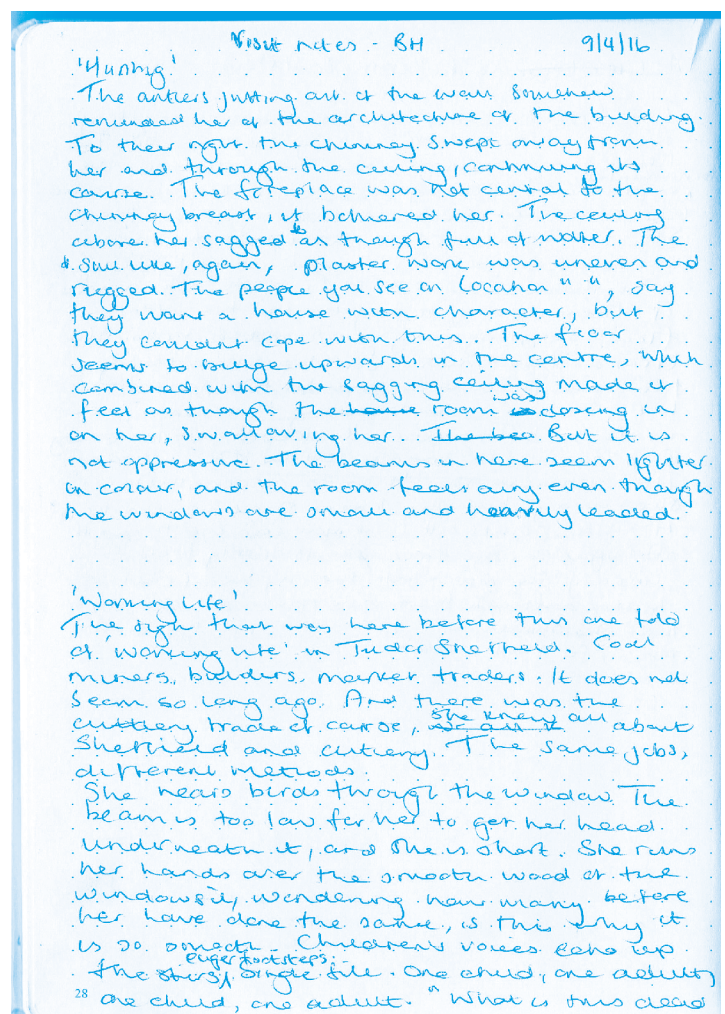 Visit notes - BH 9/4/16
'Hunting'
The antlers jutting out of the wall somehow
reminded her of the architecture of the building.
To their right the chimney swept away from
her and through the ceiling, continuing its
course. The fireplace was not central to the
chimney breast, it bothered her. The ceiling
above her sagged as though full of water. The
Sail like, again, plaster work was uneven and
rugged. The people you see on Location " ", say
they want a house with character, but
they couldn't cope with this. The floor
seems to bulge upwards in the centre, which
combined with the sagging ceiling made it
feel as though the house room was closing in
on her, swallowing her. But it is
not oppressive. The beams in here seem lighter
in colour, and the room feels airy even though
the windows are small and heavily leaded.
'Working Life'
The sign that was here before this one told
of 'working life' in Tudor Sheffield. Coal
miners, builders, market traders. It does not
seem so long ago. And there was the
cutlery trade of course, she knew all about
Sheffield and cutlery. The same jobs,
different methods.
She hears birds through the window. The
beam is too low for her to get her head
underneath it, and she is short. She runs
her hands over the smooth wood of the
windowsill, wondering how many before
her have done the same, is this why it
is so smooth. Children's voices echo up
the stairs, eager footsteps. Single file. One child, one adult,
28 one child, one adult. "What is this dead